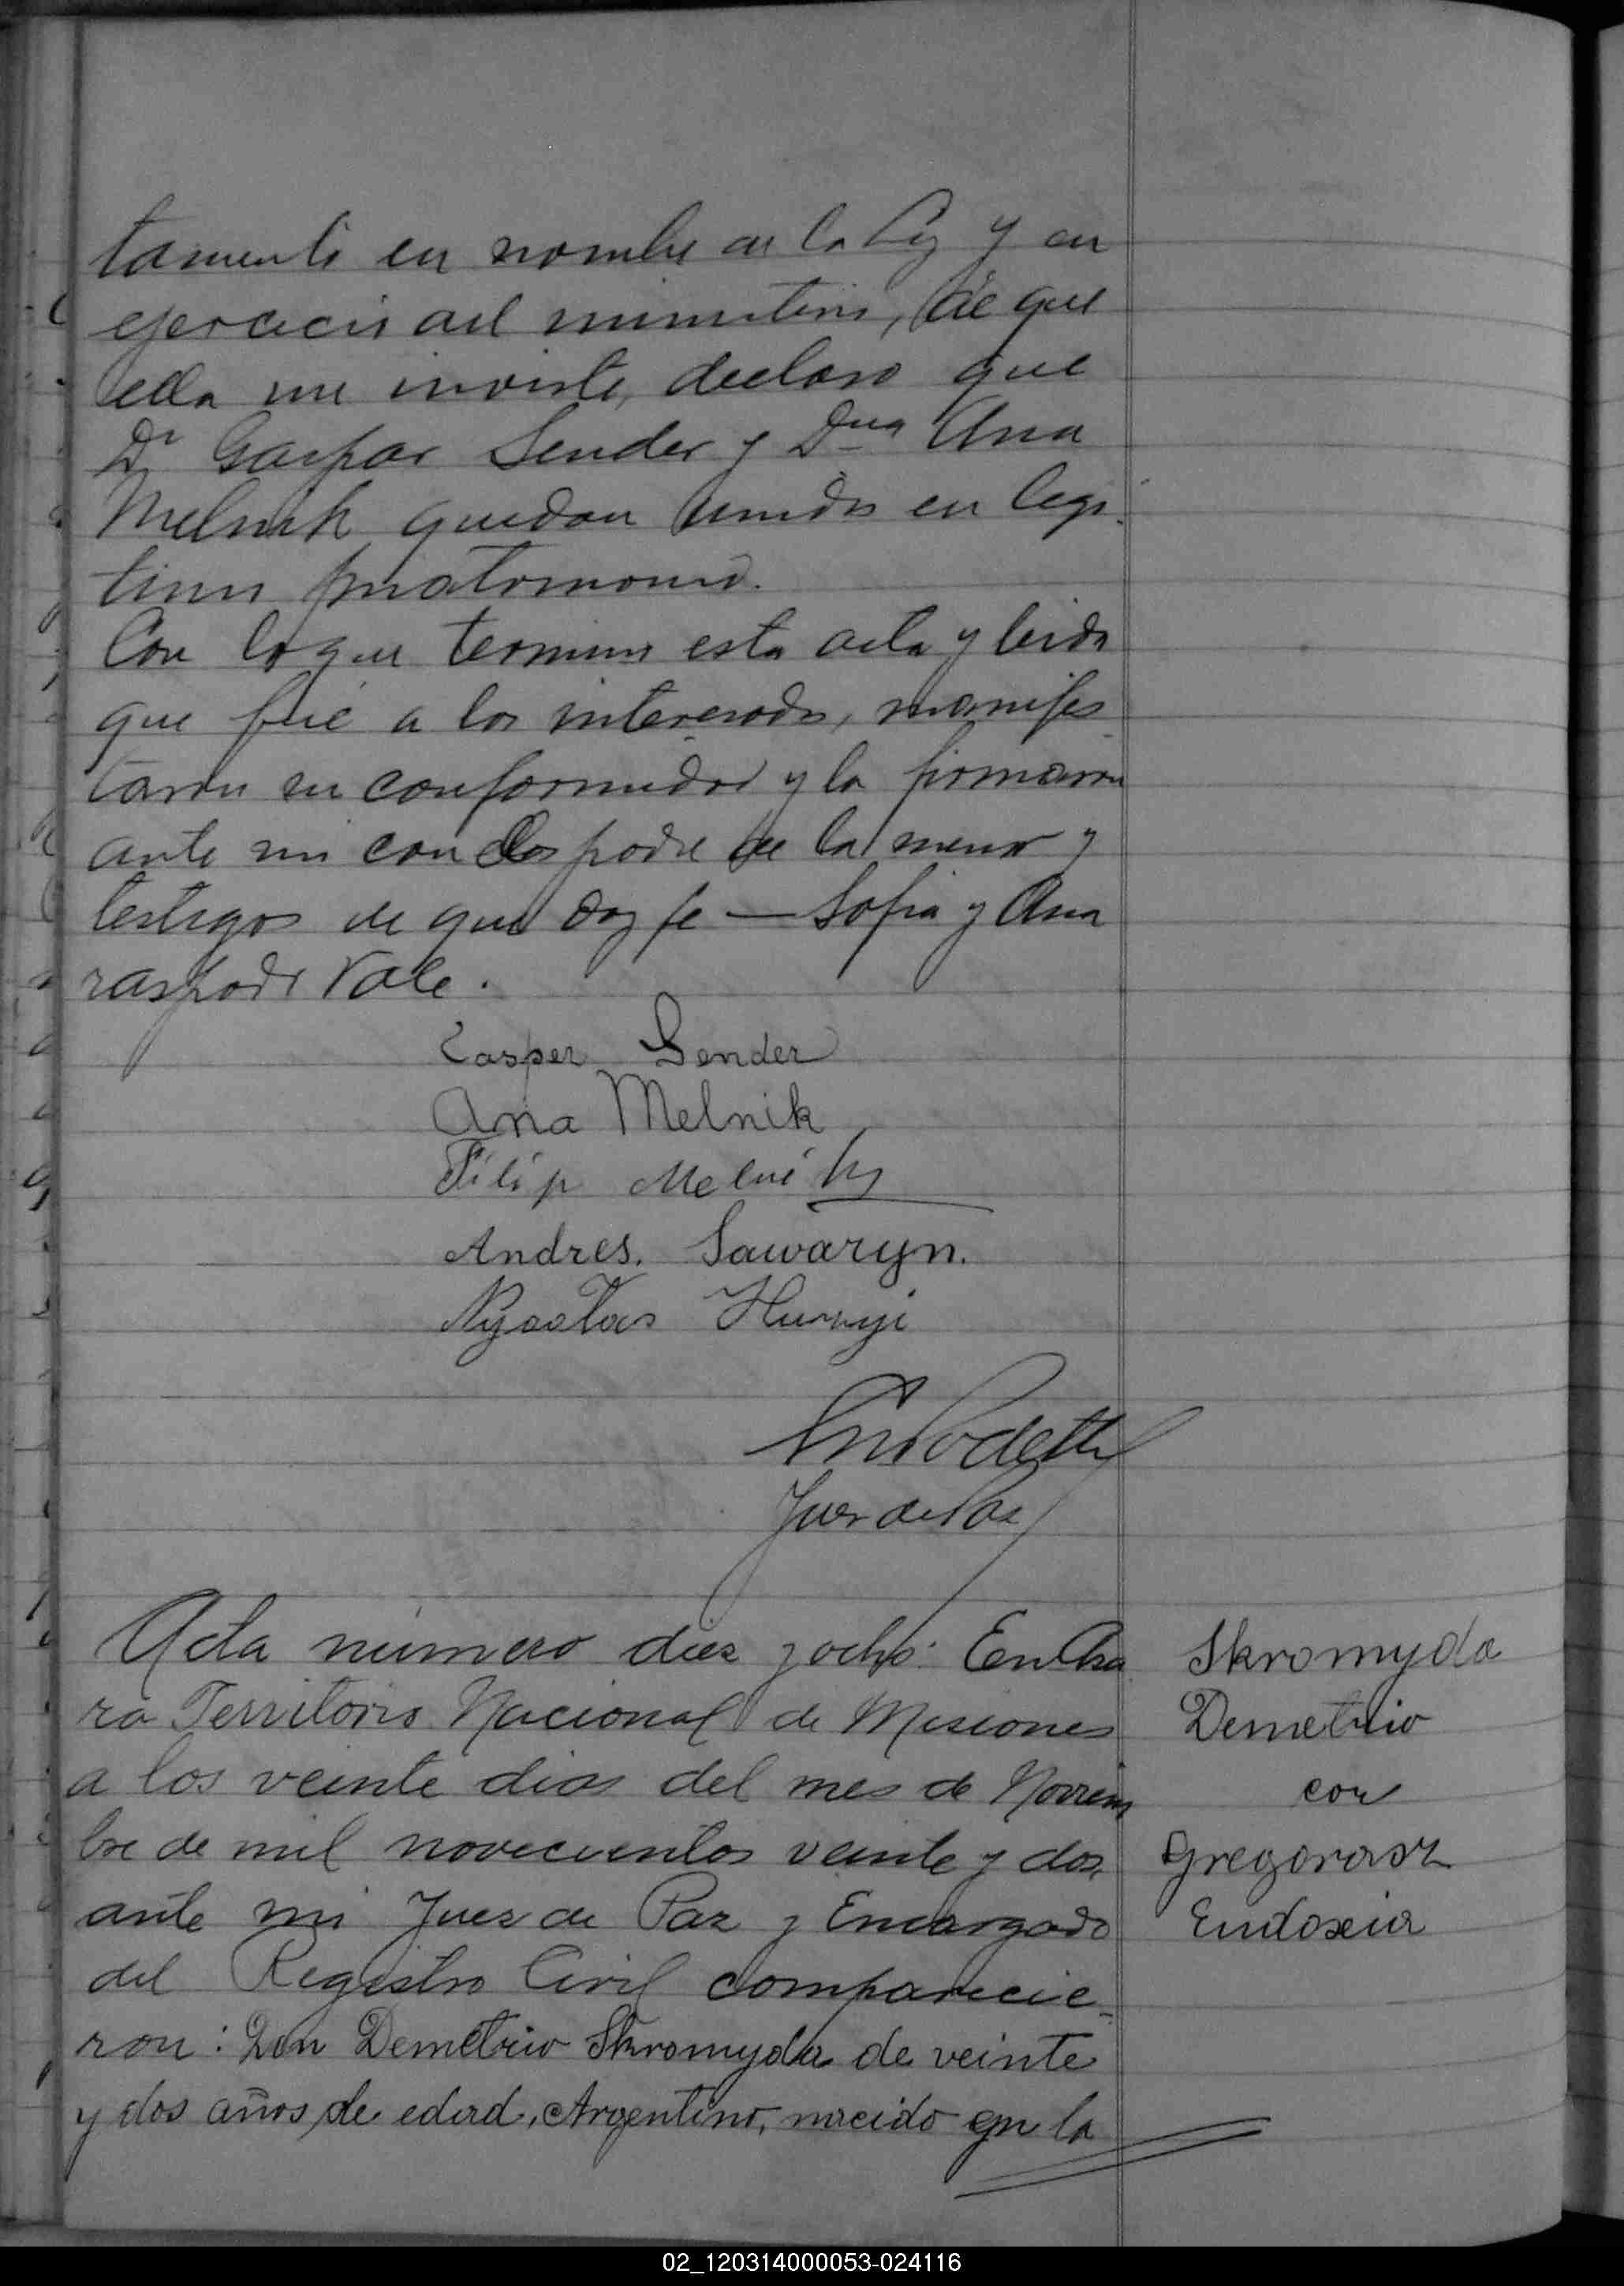 tamente en nombre de la Ley y en
ejercicio del ministerio, de que
ella me inviste, declaro que
Dn Gaspar Sender y Dña Ana
Melnik quedan unidos en legi-
timo matrimonio.
Con lo que termino esta acta y leida
que fué a los interesados, manifes
taron su conformidad y la firmaron
ante mi con el padre de la menor y
testigos de que doy fe — Sofia y Ana
raspado Vale.
Casper Sender
Ana Melnik
Filip Melnik
Andres. Sawaryn.
Juez de Paz
Acta número diez y ocho: En Aza
ra Territorio Nacional de Misiones
a los veinte dias del mes de Noviem
bre de mil novecientos veinte y dos,
ante mi Juez de Paz y Encargado
del Registro Civil comparecie-
ron: Don Demetrio Skromyda de veinte
y dos años de edad, Argentino, nacido en la
Skromyda
Demetrio
con
Gregorasz
Eudoxia
02_120314000053-024116